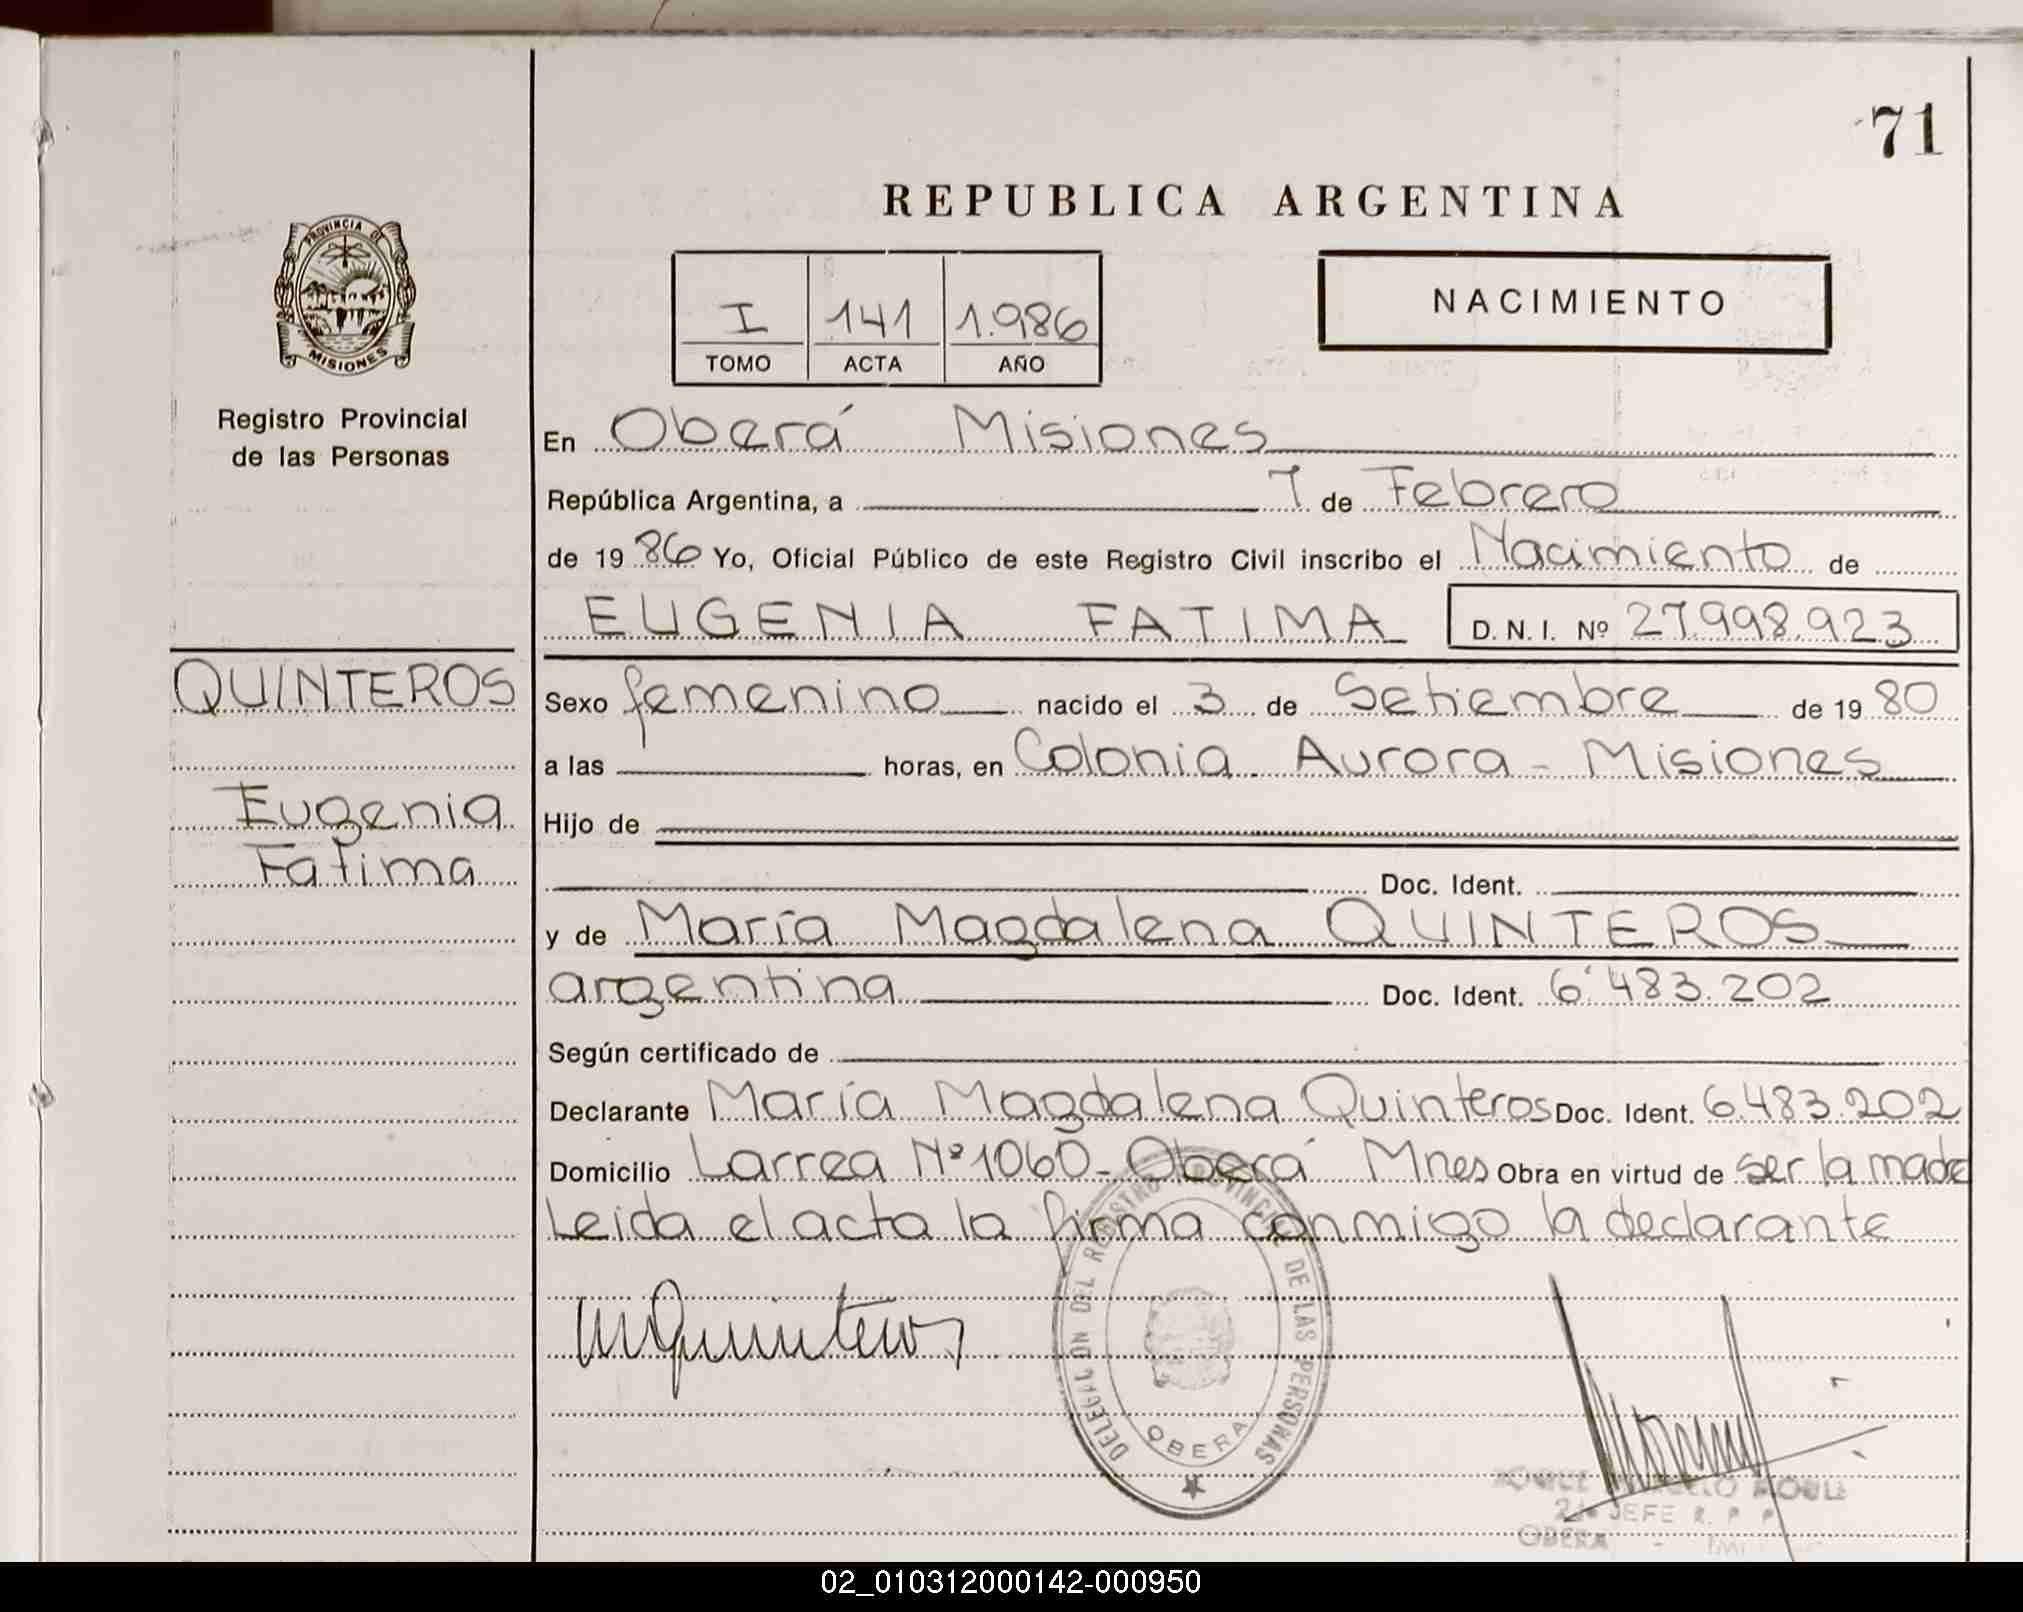 71
REPUBLICA ARGENTINA
PROVINCIA DE
MISIONES
Registro Provincial
de las Personas
I 141 1.986
TOMO ACTA AÑO
NACIMIENTO
En Oberá Misiones
República Argentina, a 7 de Febrero
de 19 86 Yo, Oficial Público de este Registro Civil inscribo el Nacimiento de
EUGENIA FATIMA D. N. I. Nº 27.998.923
QUINTEROS
Eugenia
Fatima
Sexo femenino nacido el 3 de Setiembre de 19 80
a las horas, en Colonia Aurora - Misiones
Hijo de
Doc. Ident.
y de María Magdalena QUINTEROS
argentina Doc. Ident. 6.483.202
Según certificado de
Declarante María Magdalena Quinteros Doc. Ident. 6.483.202
Domicilio Larrea Nº 1060 - Oberá Mnes Obra en virtud de ser la madre
Leida el acta la firma conmigo la declarante
MQuinteros
DELEGACION DEL REGISTRO PROVINCIAL DE LAS PERSONAS
OBERA
JEFE R. P. P.
OBERA
02_010312000142-000950